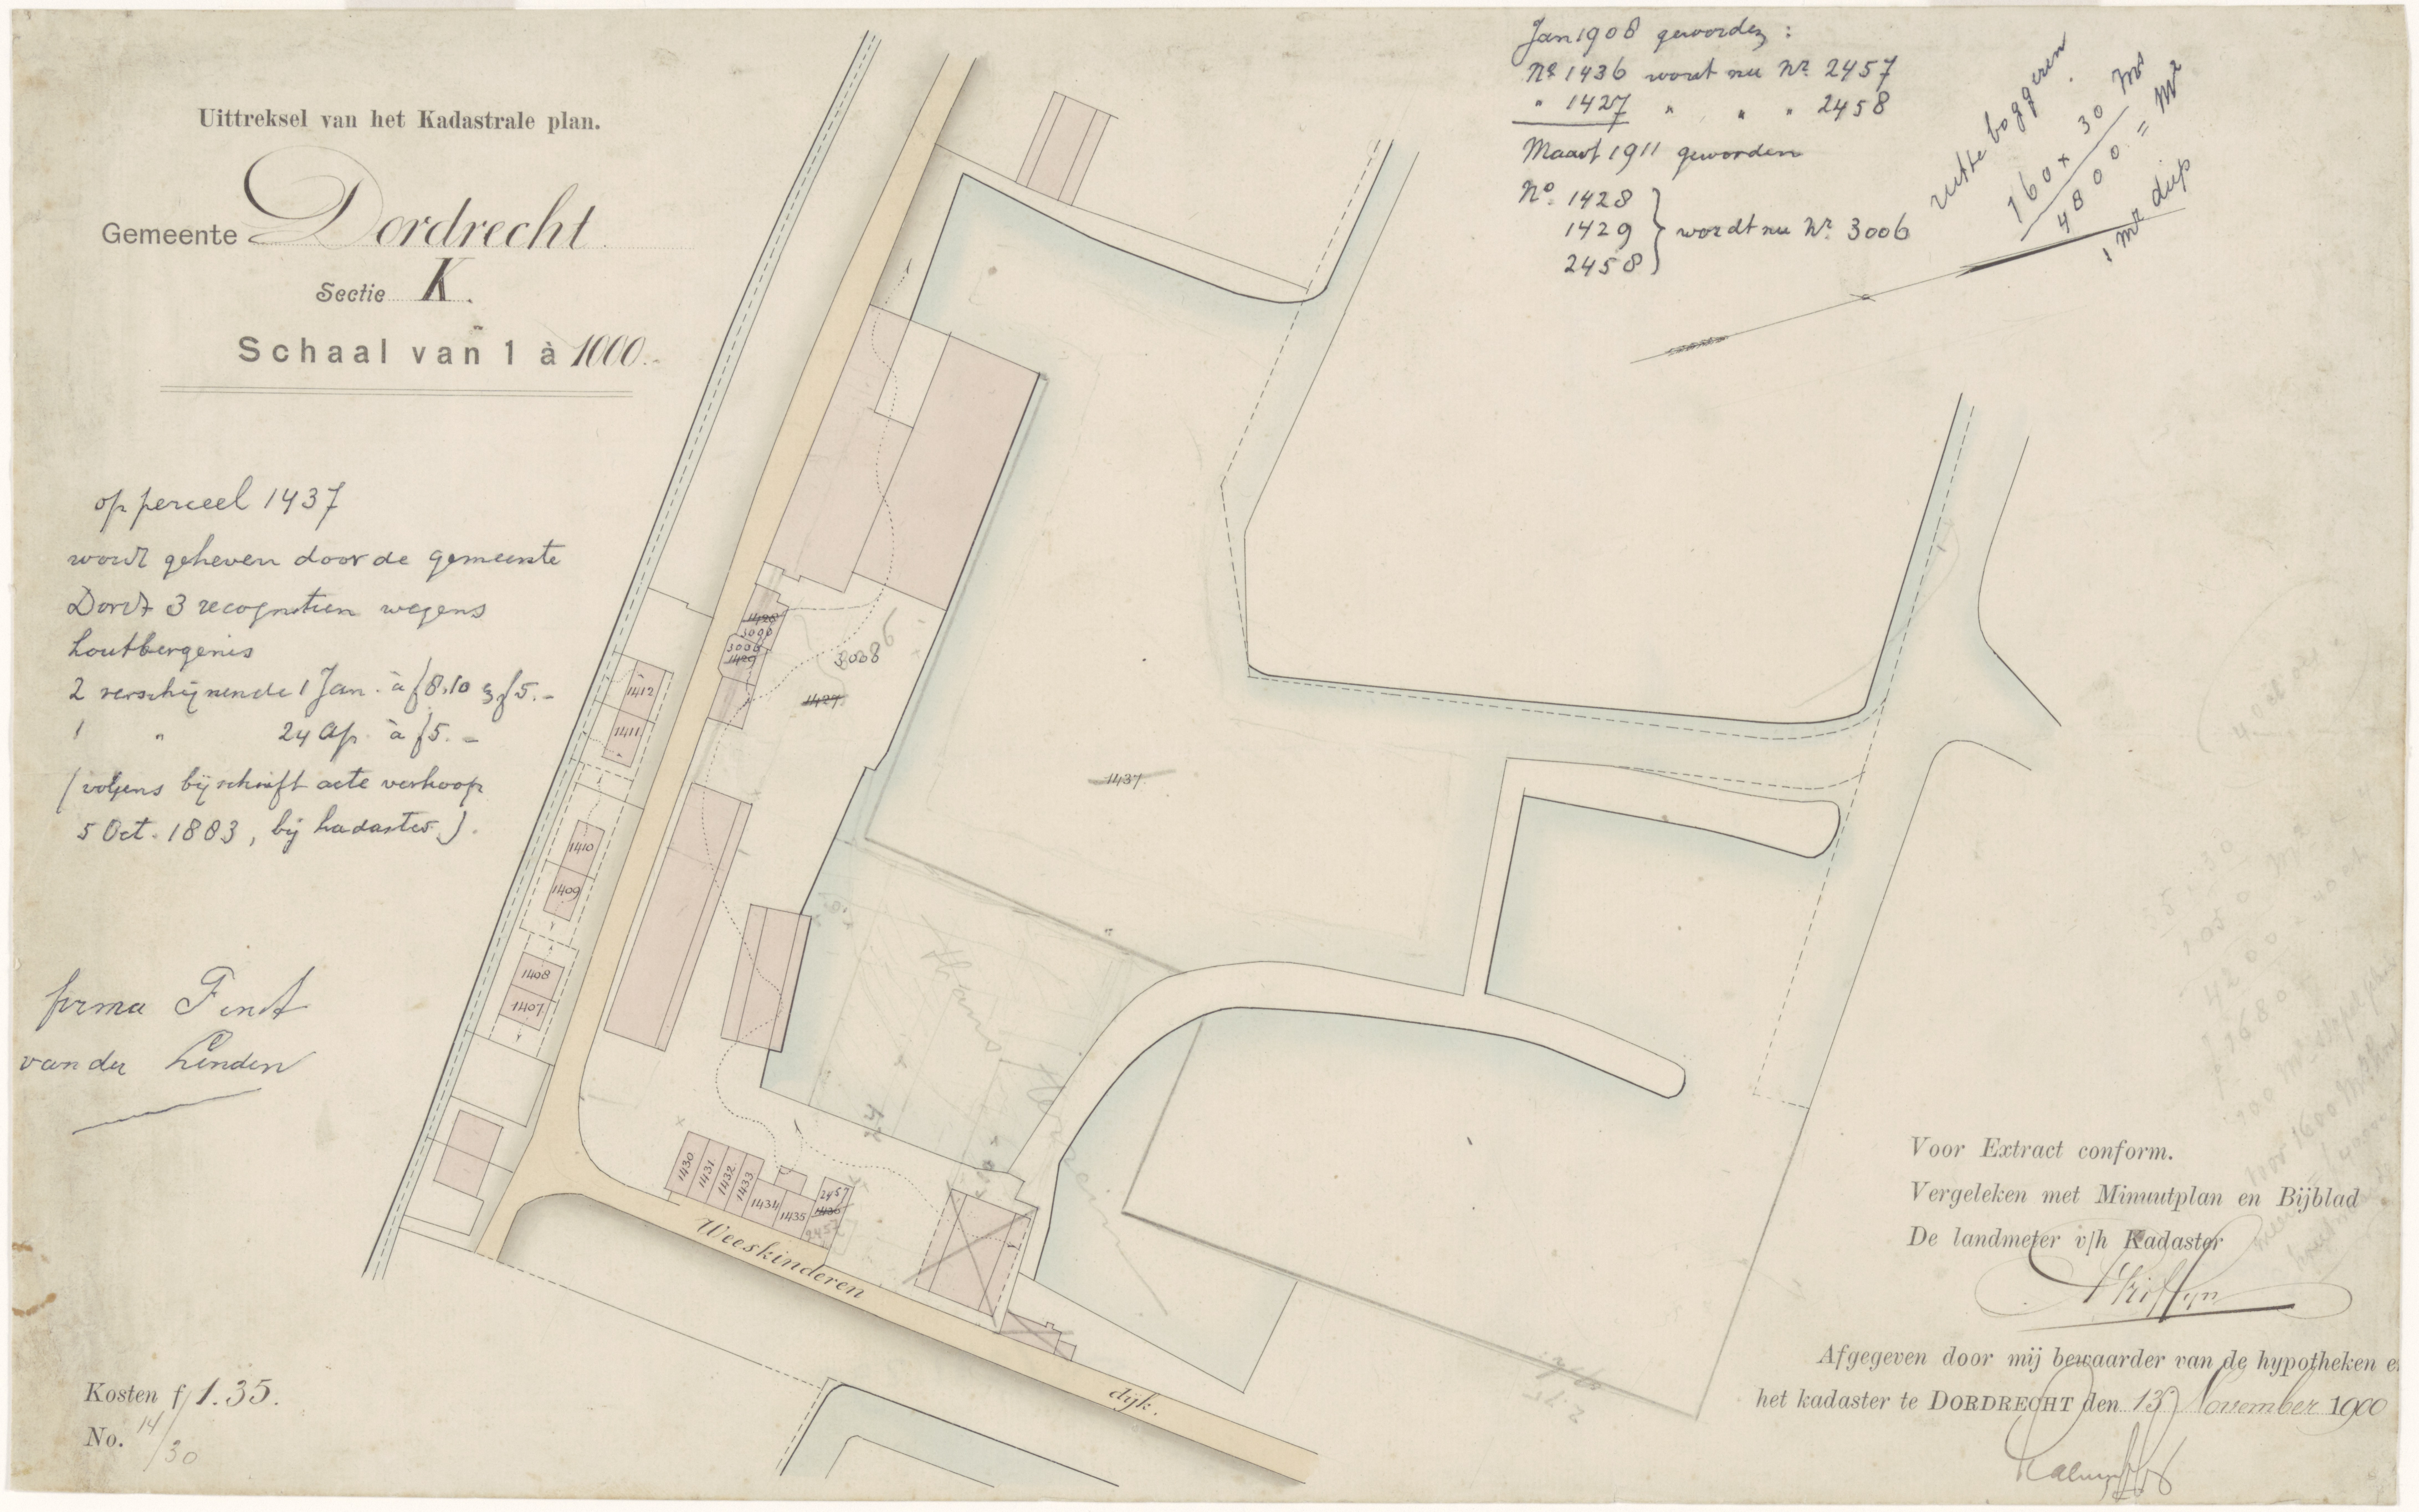 Uittreksel van het Kadastrale plan.
Gemeente Dordrecht
Sectie K.
Schaal van 1 à 1000.
op perceel 1437
wordt geheven door de gemeente
Dordt 3 recognitien wegens
houtbergenis
2 verschijnende 1 Jan. à f 8.10 & f 5.-
1 " 24 Ap. à f 5.-
(volgens bijschrift acte verkoop
5 Oct. 1883, bij kadaster).
firma
van der Linden
Kosten f 1.35.
No. 14/30
Jan 1908 geworden :
No 1436 wordt nu Nr. 2457
" 1427 " " " 2458
Maart 1911 geworden
No. 1428
1429 } wordt nu Nr. 3006
2458
baggeren
160 x 30
4800 = M2
1 mr diep
1428
3006
3006
1429
3006
1427
1412
1411
1410
1409
1408
1407
1437
1430
1431
1432
1433
1434
1435
2457
1436
2457
Weeskinderen
dijk.
Voor Extract conform.
Vergeleken met Minuutplan en Bijblad
De landmeter v/h Kadaster
Afgegeven door mij bewaarder van de hypotheken e
het kadaster te DORDRECHT den 13 November 1900